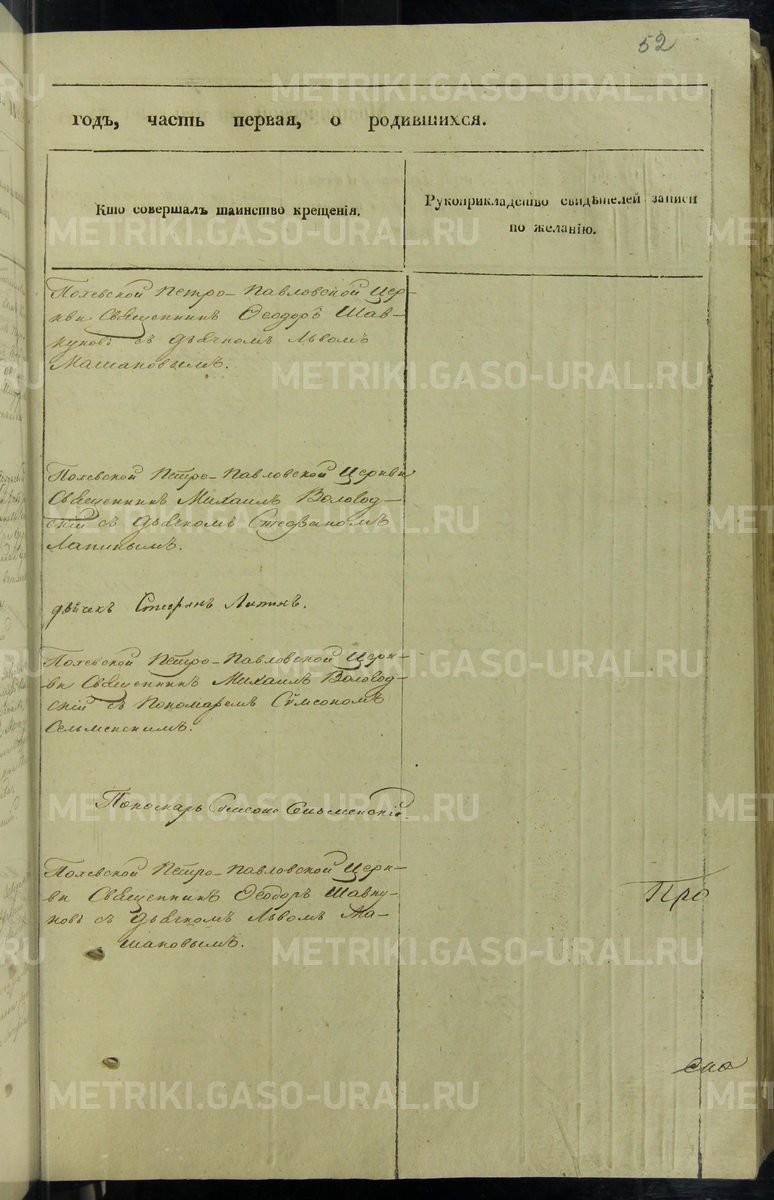 52
годъ, часть первая, о родившихся.
Кто совершалъ таинство крещенія.
Рукоприкладство свидѣтелей записи
по желанію.
Полевской Петро-Павловской Цер-
кви Священникъ Ѳеодоръ Шав-
куновъ съ дьячкомъ Львомъ
Машановымъ.
Полевской Петро-Павловской Церкви
Священникъ Михаилъ Воловод-
скій съ дьячкомъ Стефаномъ
Лапинымъ.
дьячекъ Стефанъ
Полевской Петро-Павловской Церк-
ви Священникъ Михаилъ Воловод-
скій съ Пономаремъ Сѵмсономъ
Сельменскимъ.
Пономарь Сельменскій.
Полевской Петро-Павловской Церк-
ви Священникъ Ѳеодоръ Шавку-
новъ съ дьячкомъ Львомъ Ма-
шановымъ.
Про
METRIKI.GASO-URAL.RU